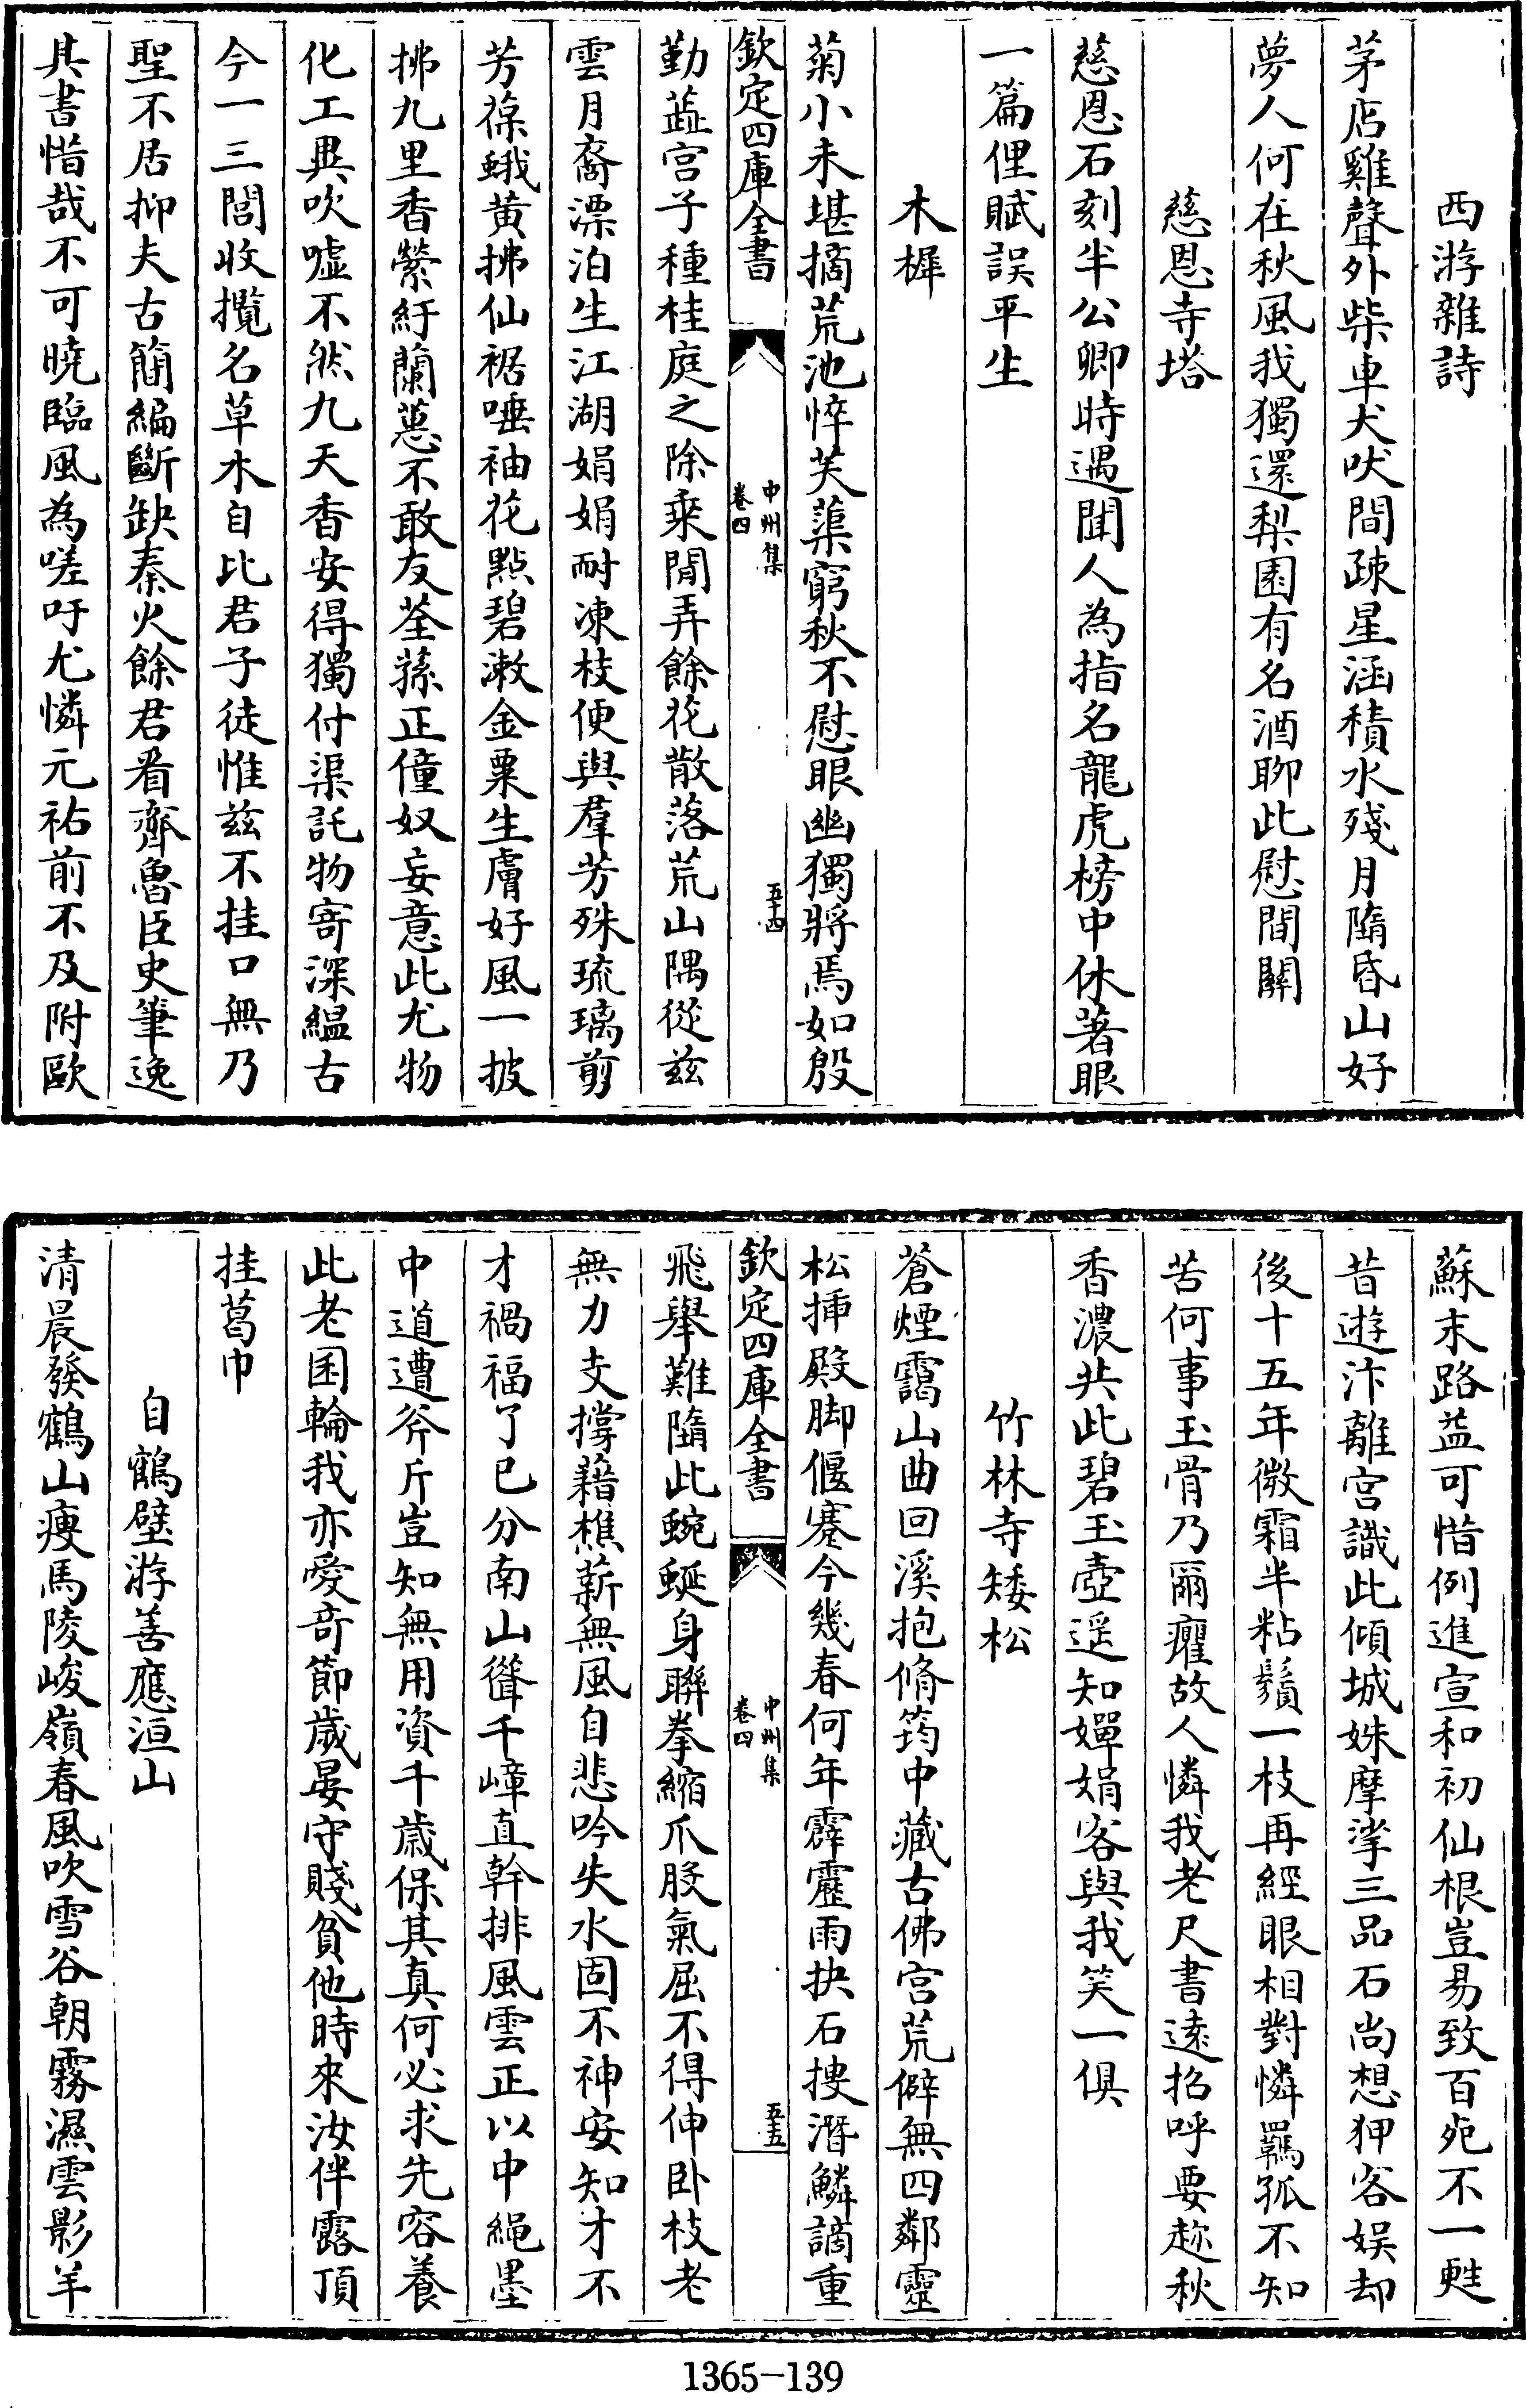 西游雜詩
茅店雞聲外柴車犬吠間疎星涵積水殘月隋昏山好
夢人何在秋風我獨還梨園有名酒聊此慰間關
慈恩寺塔
慈恩石刻半公卿時遇聞人為指名龍虎榜中休著眼
一篇俚賦誤平生
木樨
菊小未堪摘荒池悴芙蕖窮秋不慰眼幽獨將焉如殷
欽定四庫全書
中州集
卷四
五十四
勤蘂宫子種桂庭之除乘閒弄餘花散落荒山隅從兹
雲月裔漂泊生江湖娟娟耐凍枝便與羣芳殊琉璃剪
芳葆蛾黄拂仙裾唾袖花點碧漱金粟生膚好風一披
拂九里香縈紆蘭蕙不敢友荃蓀正僮奴妄意此尤物
化工異吹嘘不然九天香安得獨付渠託物寄深緼古
今一三閭收攬名草木自比君子徒惟兹不挂口無乃
聖不居抑夫古簡編斷缺秦火餘君看齊魯臣史筆逸
其書惜哉不可曉臨風為嗟吁尤憐元祐前不及附歐
蘇末路益可惜例進宣和初仙根豈易致百死不一甦
昔遊汴離宫識此傾城姝摩挲三品石尚想狎客娱却
後十五年微霜半粘鬚一枝再經眼相對憐羈孤不知
苦何事玉骨乃爾癯故人憐我老尺書遠招呼要趂秋
香濃共此碧玉壺遥知嬋娟客與我笑一俱
竹林寺矮松
蒼煙靄山曲回溪抱脩筠中藏古佛宫荒僻無四鄰靈
松挿殿脚偃蹇今幾春何年霹靂雨抉石摟潛鱗謫重
欽定四庫全書
中州集
卷四
五十五
飛舉難隋此蜿蜒身聯拳縮爪股氣屈不得伸卧枝老
無力支撐藉樵薪無風自悲吟失水固不神安知才不
才禍福了已分南山聳千嶂直幹排風雲正以中繩墨
中道遭斧斤豈知無用資千歲保其真何必求先容養
此老困輪我亦愛奇節歲晏守賤貧他時來汝伴露頂
挂葛巾
自鶴壁游善應洹山
清晨發鶴山瘦馬陵峻嶺春風吹雪谷朝霧濕雲影羊
1365-139